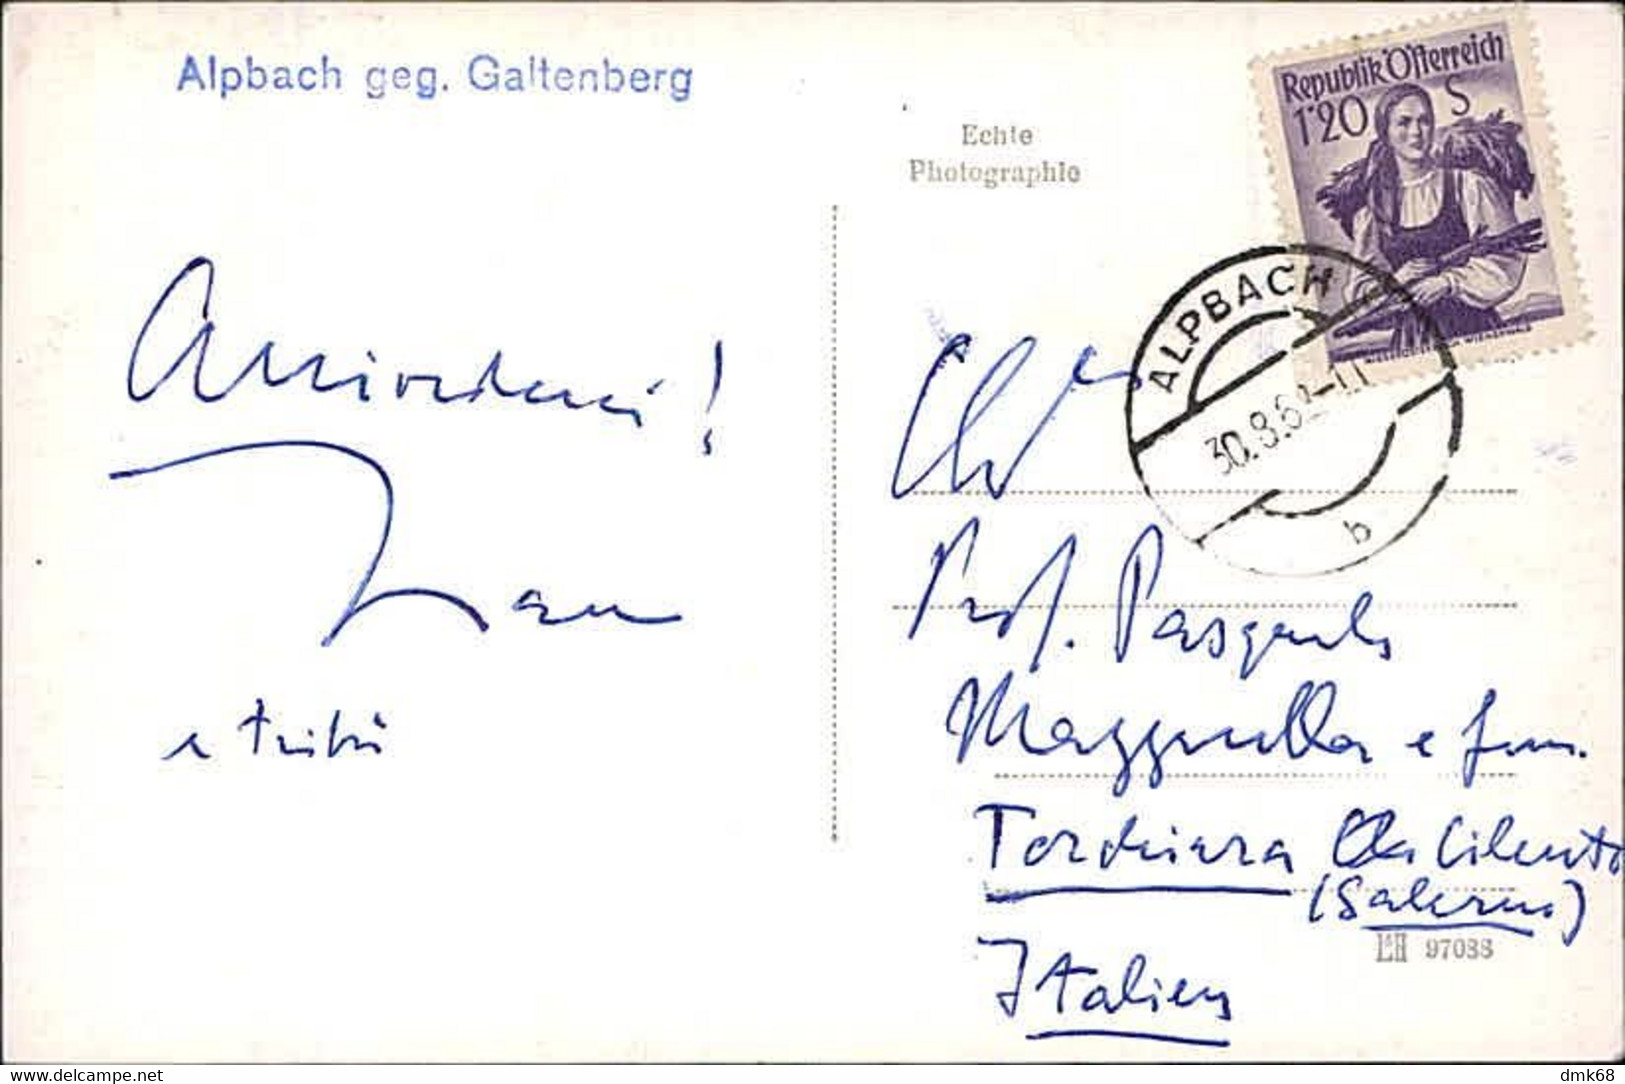 Alpbach geg. Galtenberg
Echte
Photographie
Republik Österreich
1'20 S
ALPBACH
30.8.62-11
b
Arrivederci!
e tribù
Prof. Pasquale
Mazzarella e fam.
Torchiara Cilento
(Salerno)
Italien
LH 97088
www.delcampe.net
dmk68